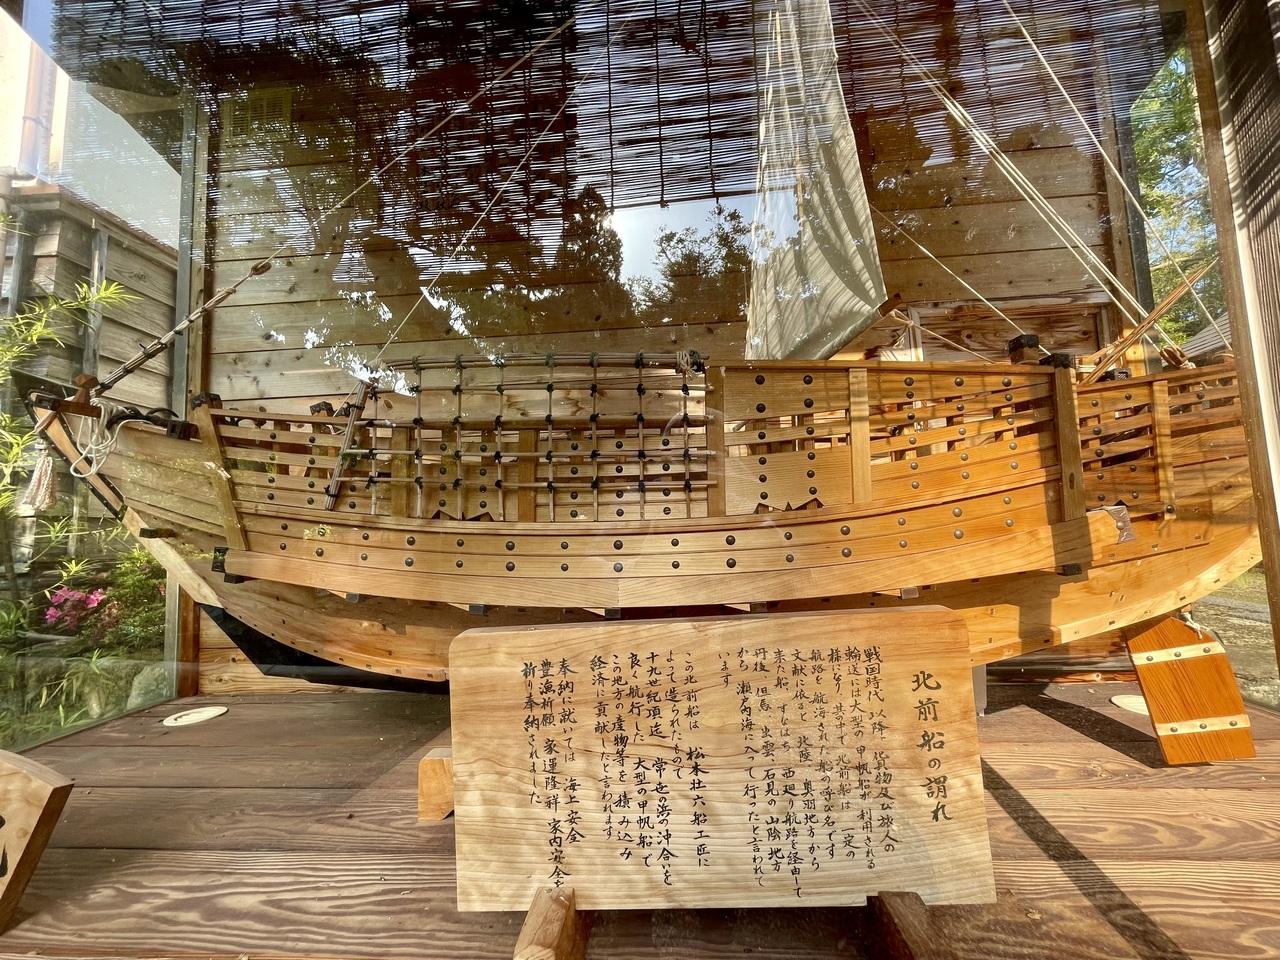 北前船の謂れ
戦国時代 以降、貨物及び旅人の
輸送には大型の 甲帆船が 利用される
様になり、其の中で 北前船は 一定の
航路を 航海された船の呼び名です
文献に依ると 北陸、奥羽地方から
来た船、すなはち 西廻り航路を経由して
丹後、但馬、出雲、石見の山陰地方
から 瀬戸内海に入って行ったと言われて
います
この北前船は 松本壮六船工匠に
よって造られたもので
十九世紀頃迄 常世の浜の沖合いを
良く航行した 大型の甲帆船で
この地方の産物等を 積み込み
経済に貢献したと言われます
奉納に就いては 海上安全
豊漁祈願 家運隆祥 家内安全を
祈り奉納されました